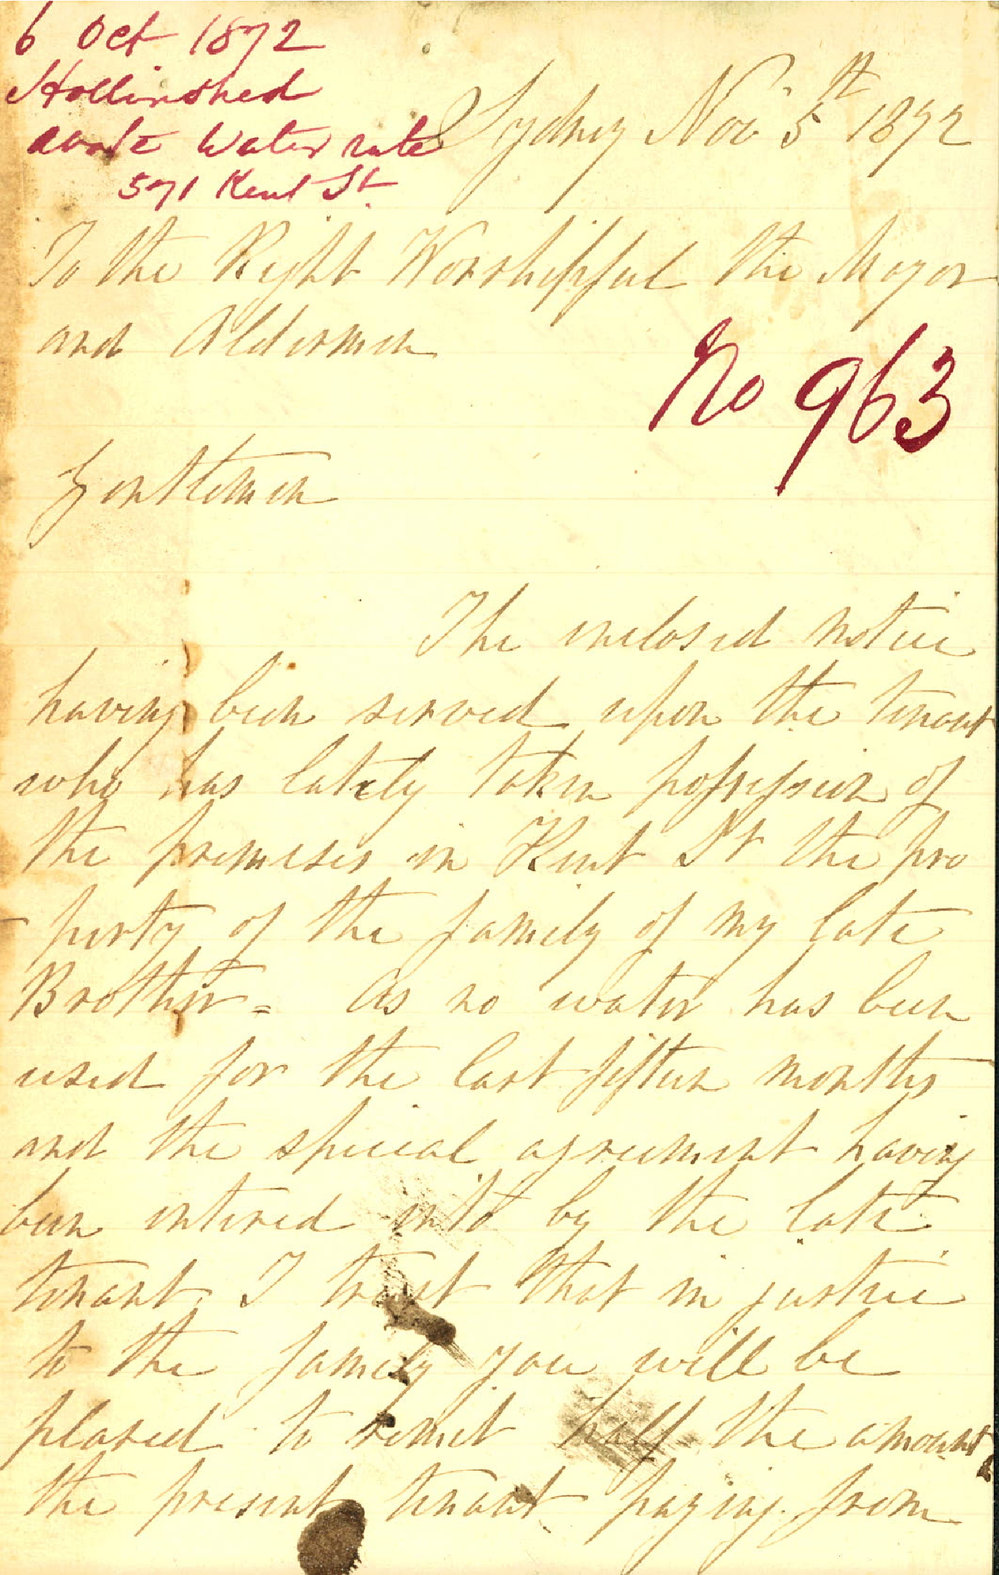 6 Oct 1872
Hollinshed
Water rate
571 Kent St.
Sydney Nov 5th 1872
To the Right Worshipful the Mayor
and Aldermen
No 963
Gentlemen
The inclosed notice
having been served upon the tenant
who has lately taken possession of
the premises in Kent St the pro
-perty of the family of my late
Brother = As no water has been
used for the last fifteen months
and the special agreement having
been entered into by the late
tenant I trust that in justice
to the family you will be
pleased to remit half the amount,
the present tenant paying from